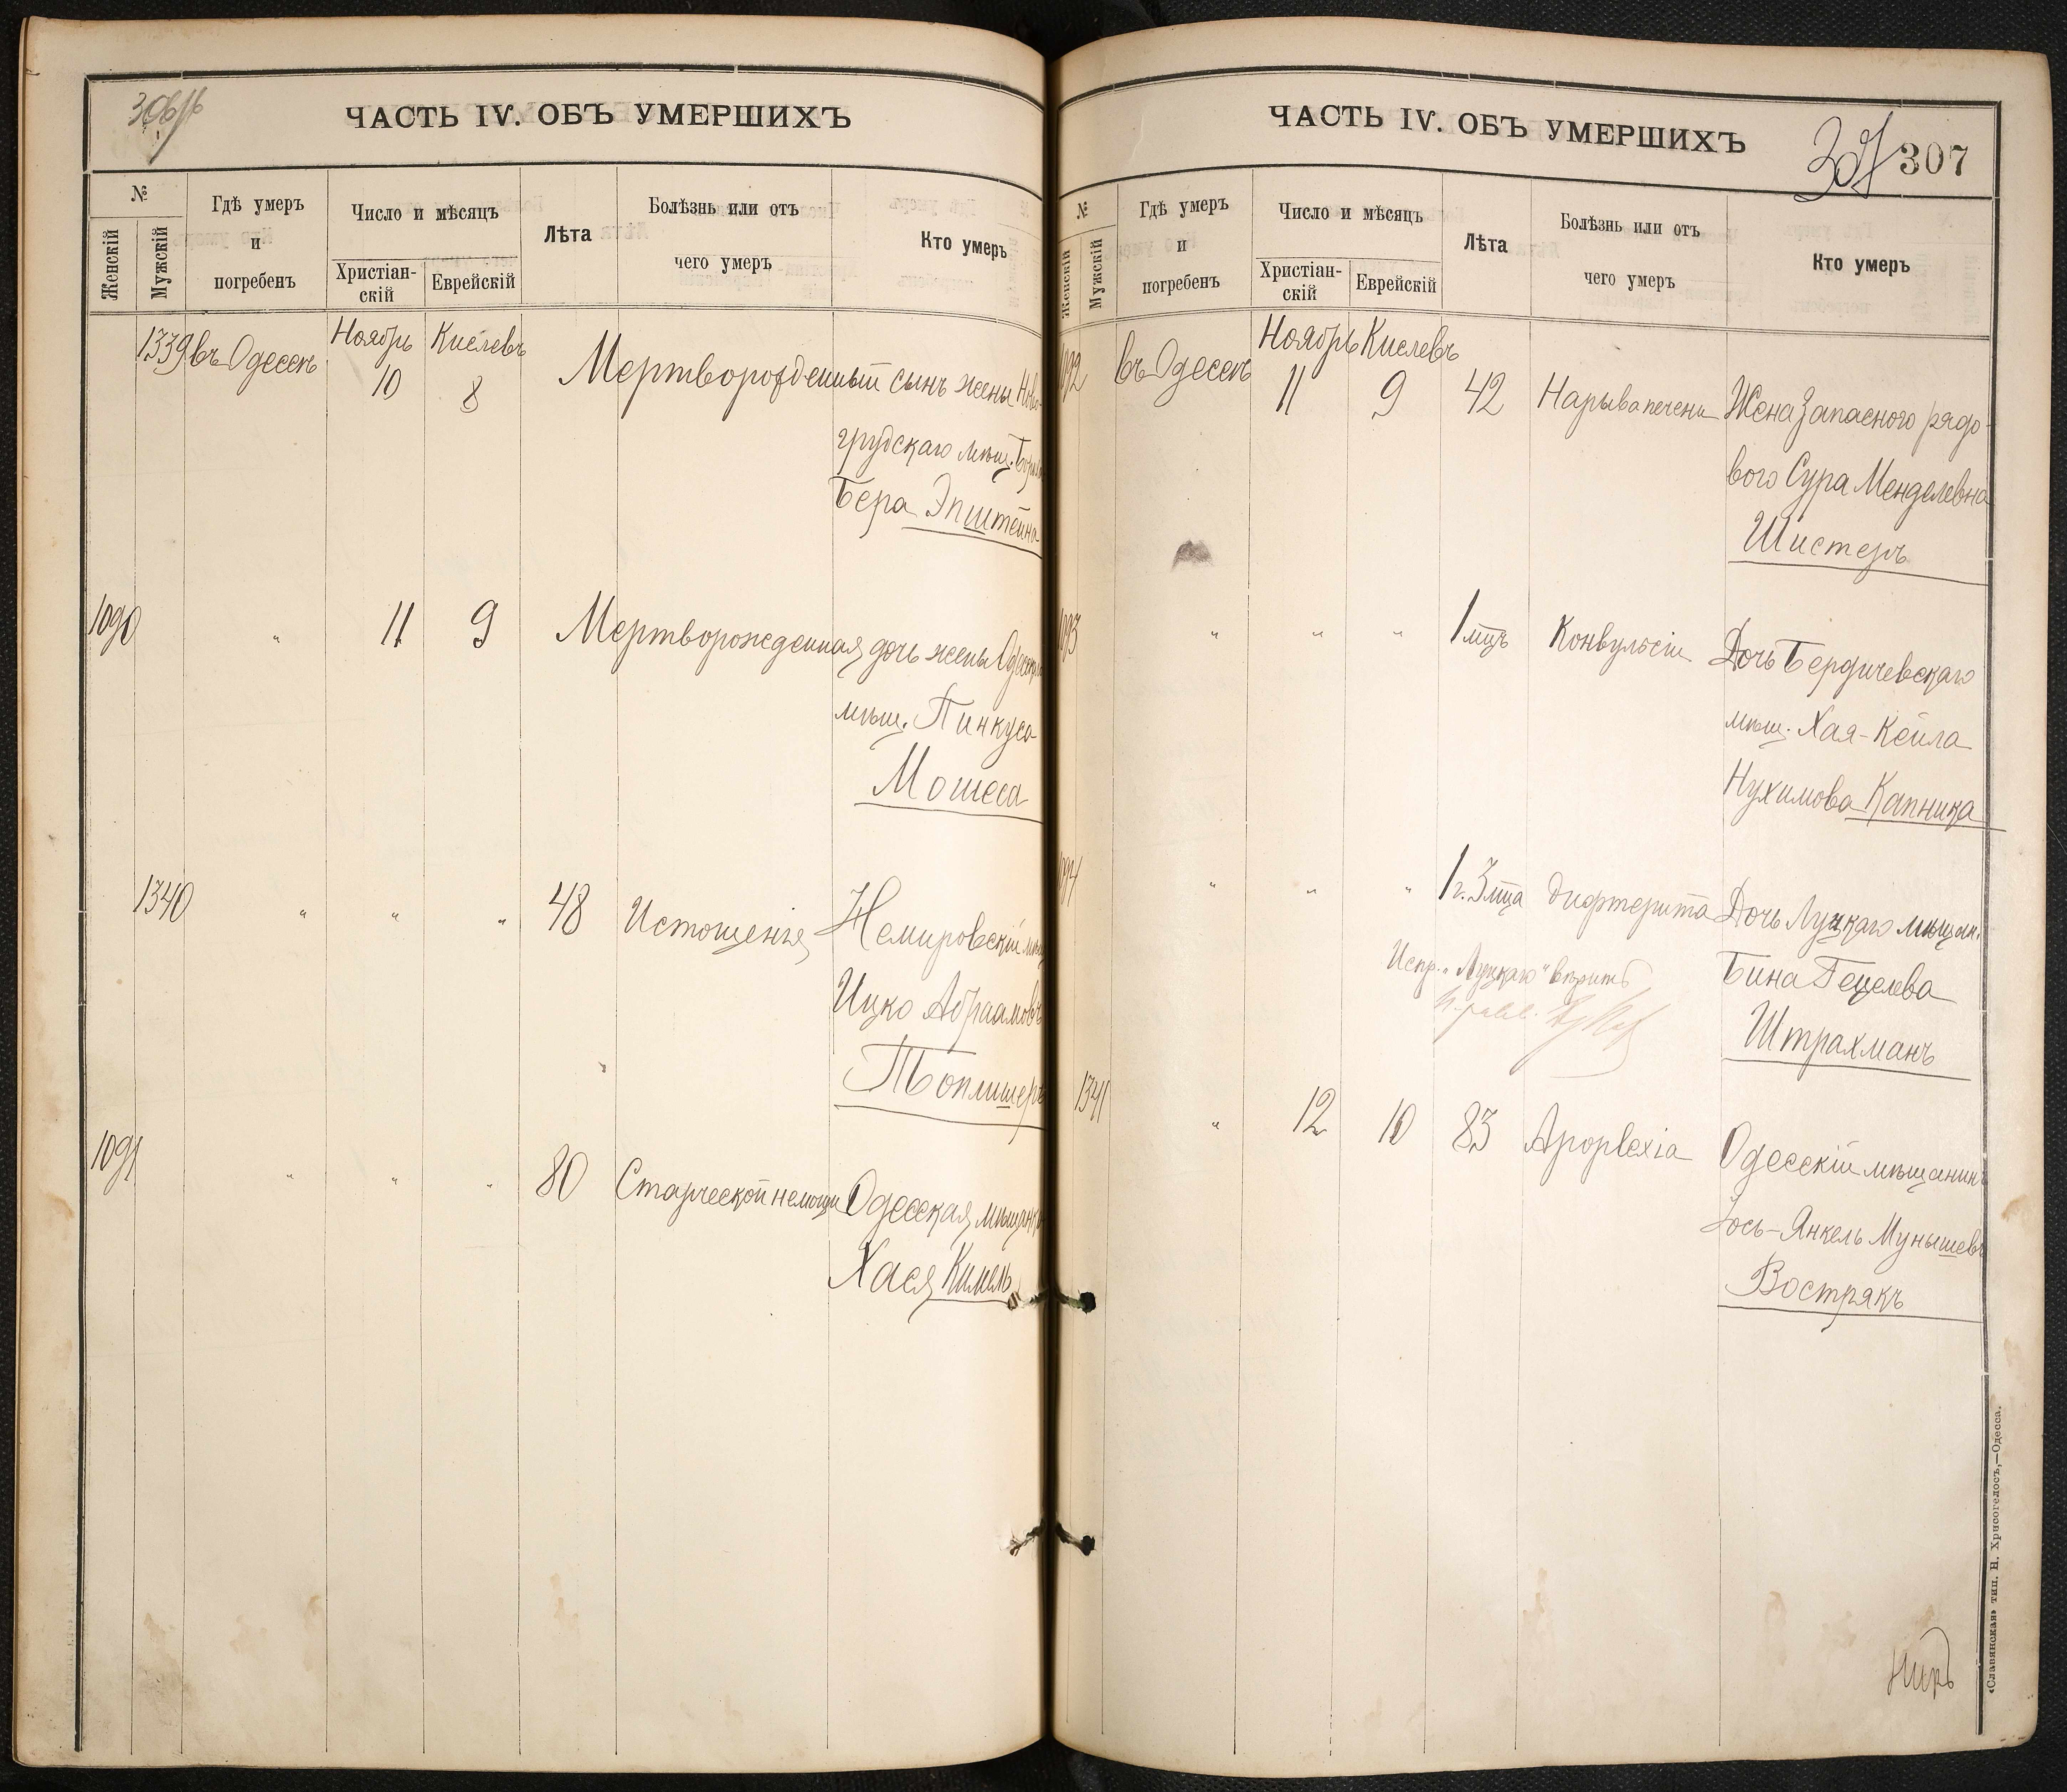 306
ЧАСТЬ IV. ОБЪ УМЕРШИХЪ
№
Женскій
Мужскій
Гдѣ умеръ
и
погребенъ
Число и мѣсяцъ
Христіан-
скій
Еврейскій
Лѣта
Болѣзнь или отъ
чего умеръ
Кто умеръ
1339 въ Одессѣ Ноябрь 10 Кислевъ 8 Мертворожденный сынъ жены Ново-
грудскаго мѣщ.
Бера Эпштейна
1090 " 11 9 Мертворожденная дочь жены Одесскаго
мѣщ. Пинкуса
Мошеса
1340 " " " 48 Истощенія Немировскій мѣщ.
Ицко Абраамовъ
Топлишеръ
1091 " " " 80 Старческой немощи Одесская мѣщанка
Хася Кимель
ЧАСТЬ IV. ОБЪ УМЕРШИХЪ
307 307
№
Женскій
Мужскій
Гдѣ умеръ
и
погребенъ
Число и мѣсяцъ
Христіан-
скій
Еврейскій
Лѣта
Болѣзнь или отъ
чего умеръ
Кто умеръ
1092 въ Одессѣ Ноябрь 11 Кислевъ 9 42 Нарыва печени Жена запаснаго рядо-
вого Сура Менделевна
Шистеръ
1093 " " " 1 мцъ Конвульсіи Дочь Бердичевскаго
мѣщ. Хая-Кейла
Нухимова Капника
1094 " " " 1 г. 3 мца Дифтерита Дочь Луцкаго мѣщан.
Испр. "Луцкаго" вѣрить Бина Гецелева
Штрахманъ
1341 " 12 10 83 Apoplexia Одесскій мѣщанинъ
Іось-Янкель Мунышевъ
Вострякъ
«Славянская» тип. Н. Хрисогелосъ,—Одесса.